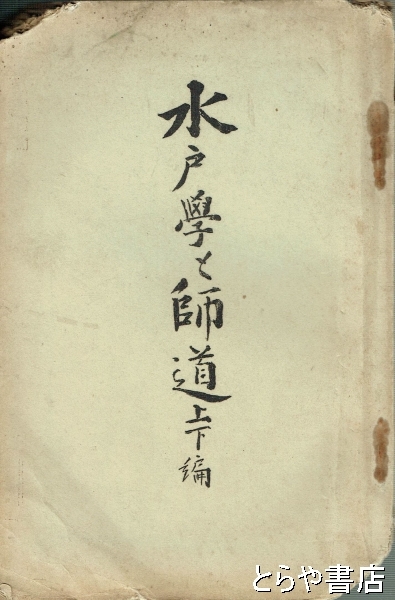 水戸學と師道上下編
とらや書店